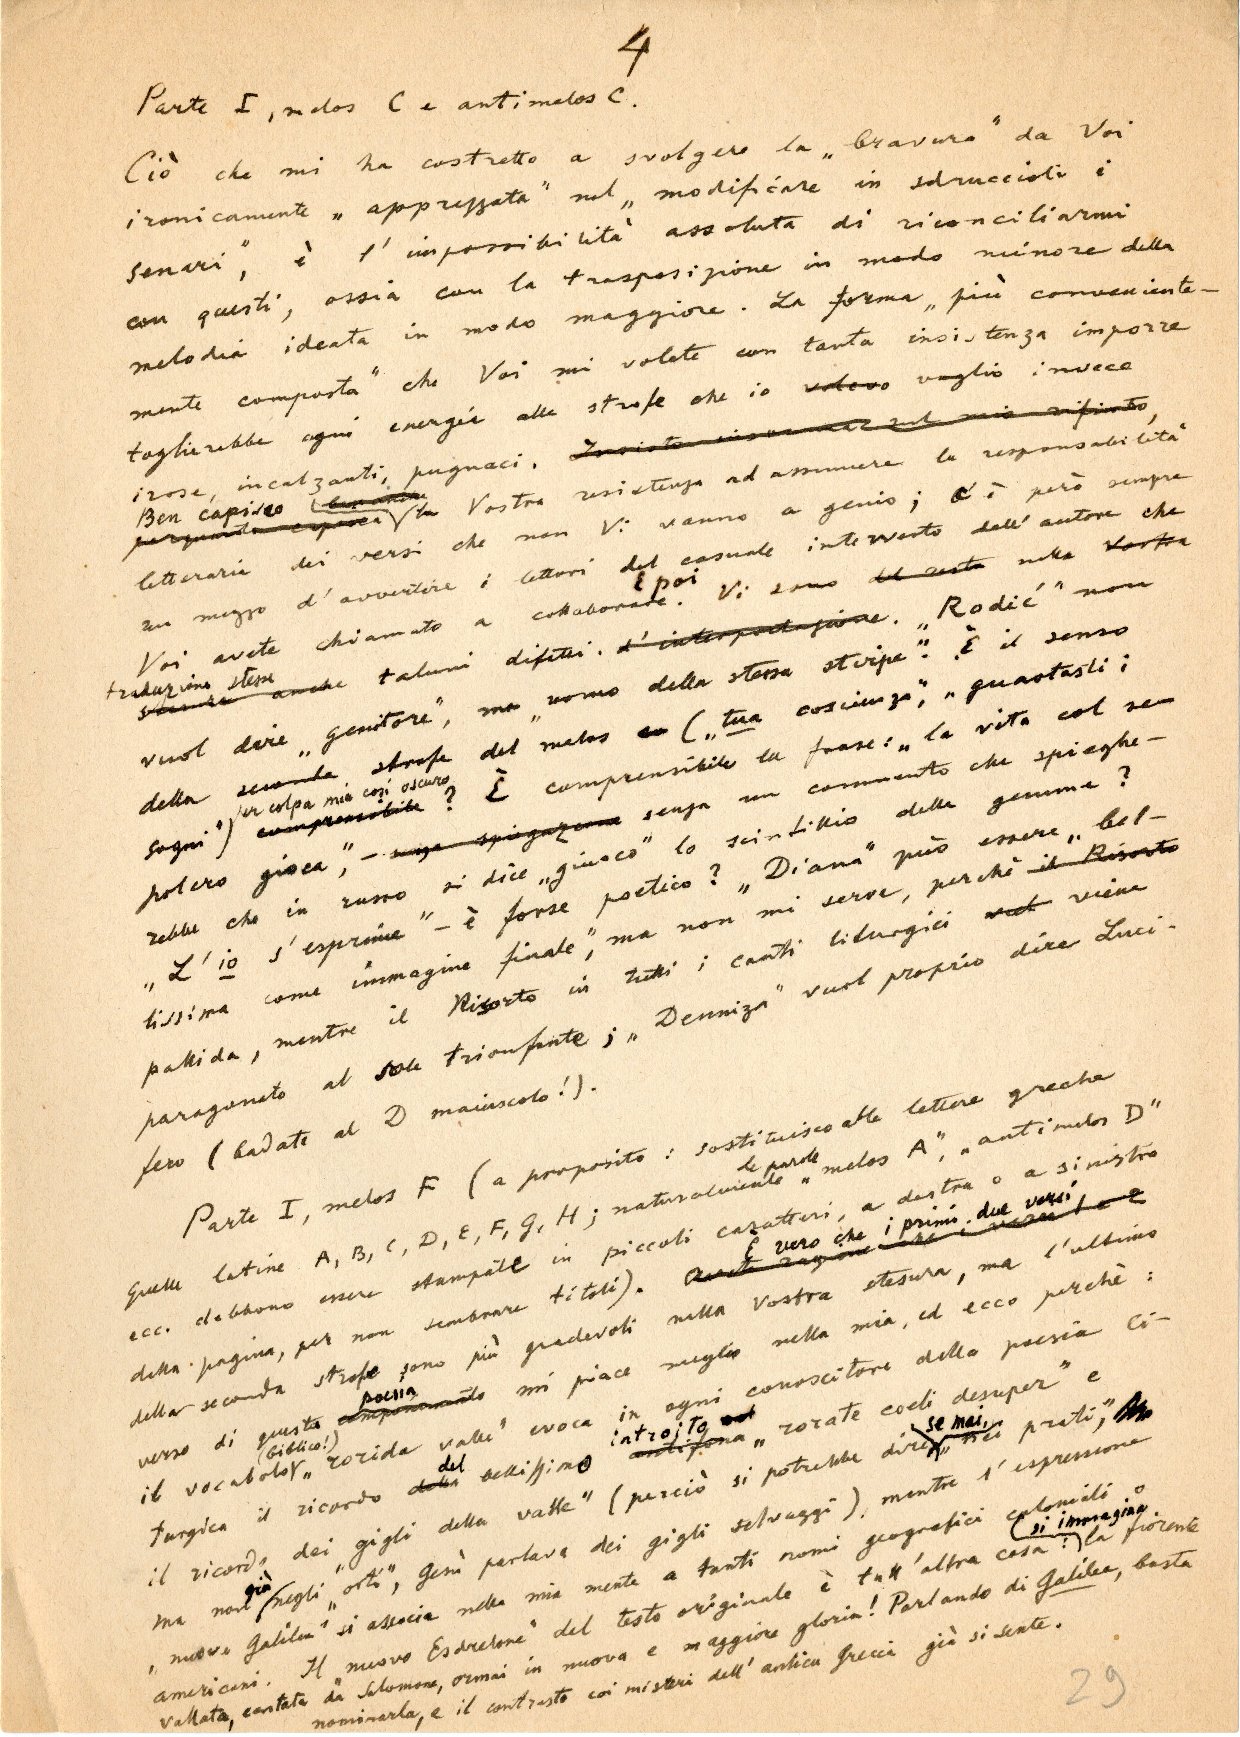 4
Parte I, melos C e antimelos C.
Ciò che mi ha costretto a svolgere la „bravura" da Voi
ironicamente „apprezzata" nel „modificare in sdruccioli i
senari", è l'impossibilità assoluta di riconciliarmi
con questi, ossia con la trasposizione in modo minore della
melodia ideata in modo maggiore. La forma „più conveniente-
mente composta" che Voi mi volete con tanta insistenza imporre
toglierebbe ogni energia alle strofe che io volevo voglio invece
irose, incalzanti, pugnaci.
Ben capisco la Vostra resistenza ad assumere la responsabilità
letteraria dei versi che non Vi vanno a genio; c'è però sempre
un mezzo d'avvertire i lettori del casuale intervento dell'autore che
Voi avete chiamato a collaborare. Vi sono poi del resto nella Vostra
traduzione stessa
anche taluni difetti. d'interpretazione. „Rodić" non
vuol dire „genitore", ma „uomo della stessa stirpe". È il senso
della seconda strofa del melos („tua coscienza", „guastasti i
sogni") per colpa mia così oscuro
comprensibile? È comprensibile la frase: „la vita col se-
polcro gioca", – senza spiegazione senza un commento che spieghe-
rebbe che in russo si dice „giuoco" lo scintillio delle gemme?
„L'io s'esprime" – è forse poetico? „Diana" può essere „bel-
lissima come immagine finale", ma non mi serve, perchè il Risorto
pallida, mentre il Risorto in tutti i canti liturgici viene
paragonato al sole trionfante; „Denniza" vuol proprio dire Luci-
fero (badate al D maiuscolo!).
Parte I, melos F (a proposito: sostituisco alle lettere greche
quelle latine A, B, C, D, E, F, G, H; naturalmente le parole „melos A", „antimelos D"
ecc. debbono essere stampate in piccoli caratteri, a destra o a sinistra
della pagina, per non sembrare titoli). È vero che i primi due versi
della seconda strofa sono più gradevoli nella Vostra stesura, ma l'ultimo
verso di questa poesia componimento mi piace meglio nella mia, ed ecco perchè:
il vocabolo (biblico!) „rorida valle" evoca in ogni conoscitore della poesia li-
turgica il ricordo del bellissimo introito antifona „rorate coeli desuper" e
il ricordo dei „gigli della valle" (perciò si potrebbe dire, se mai, „nei prati",
ma non già negli „orti", Gesù parlava dei gigli selvaggi), mentre l'espressione
„nuova Galilea" si associa nella mia mente a tanti nomi geografici coloniali o
americani. Il nuovo Esdrelone" del testo originale è tutt'altra cosa: si immagina la fiorente
vallata, cantata da Salomone, ormai in nuova e maggiore gloria! Parlando di Galilea, basta
nominarla, e il contrasto coi misteri dell'antica Grecia già si sente.
29